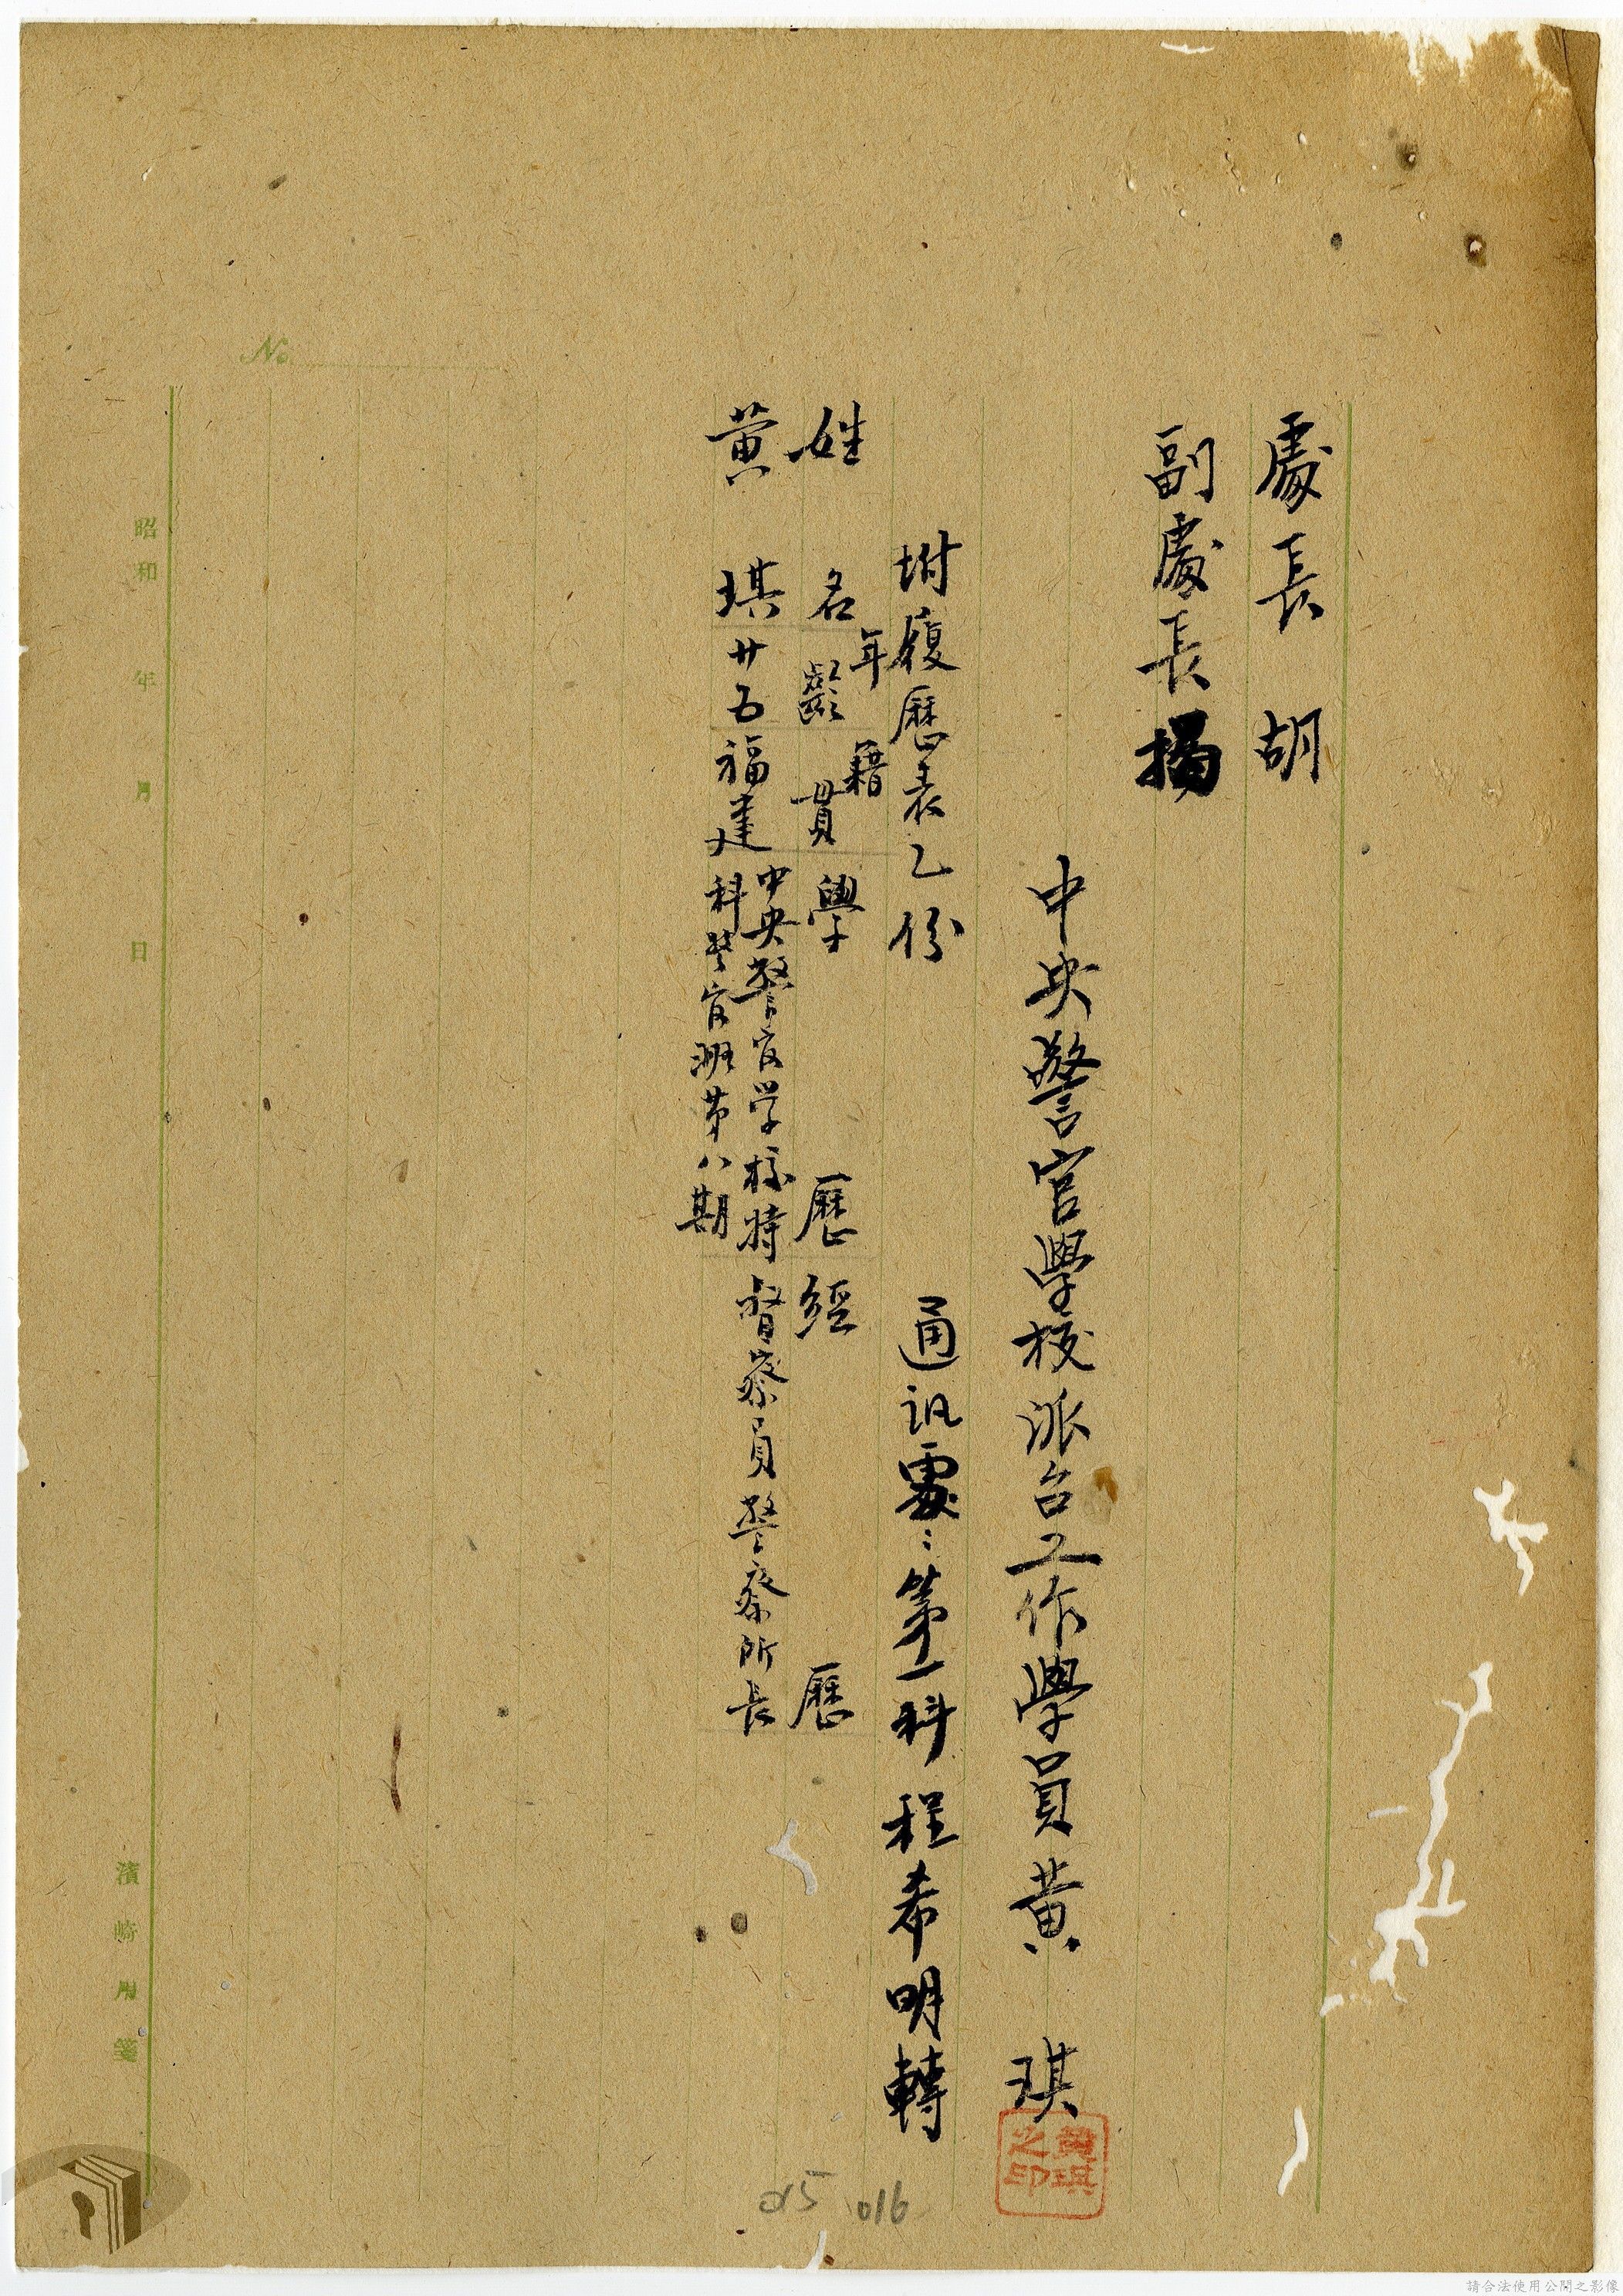 處長 胡
副處長 揭
中央警官學校派台工作學員黃 琪
黃琪
之印
附履歷表乙份 通訊處：第一科程希明轉
姓名 年齡 籍貫 學歷 經歷
黃琪 廿五 福建 中央警官学校特科警官班第八期 督察員警察所長
No.
昭和 年 月 日
濱崎用箋
015 016
請合法使用公開之影像